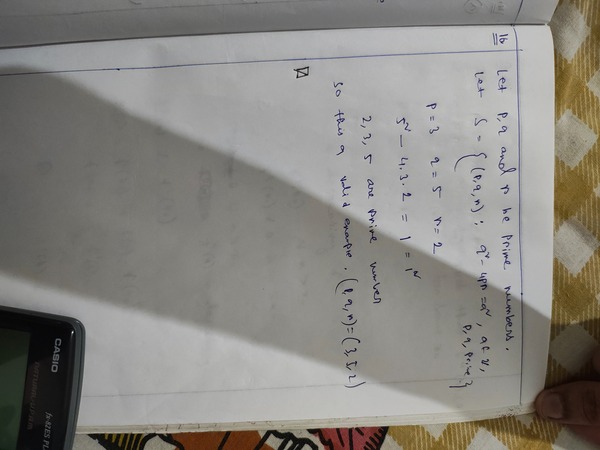 16 Let p, q and n be prime numbers.
Let S = { (p, q, n) : q² - 4pn = a², a ∈ ℤ,
p, q, prime }
p = 3 q = 5 n = 2
5² - 4.3.2 = 1 = 1²
2, 3, 5 are prime number
so this a valid example. (p, q, n) = (3, 5, 2)
CASIO
fx-82ES PL